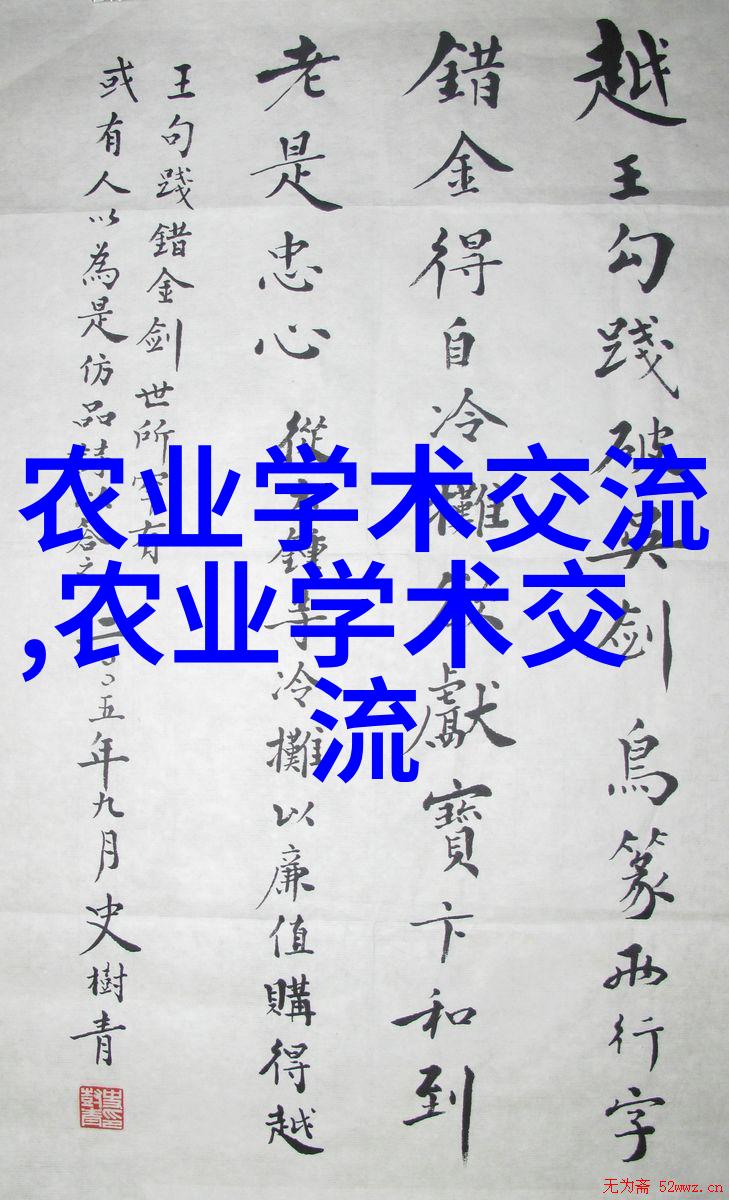 越王勾踐破吳剑鳥篆兩行字
錯金得自冷攤獻寶卞和到
老是忠心 從手冷攤以廉值購得越
王句踐錯金剑世所罕有
或有人以為是仿品 二〇〇五年九月史樹青
农业学术交流
,农业学术交
流
无为斋 52wwz.cn